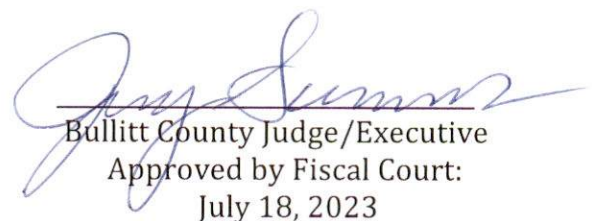 Jerry Summers
Bullitt County Judge/Executive
Approved by Fiscal Court:
July 18, 2023